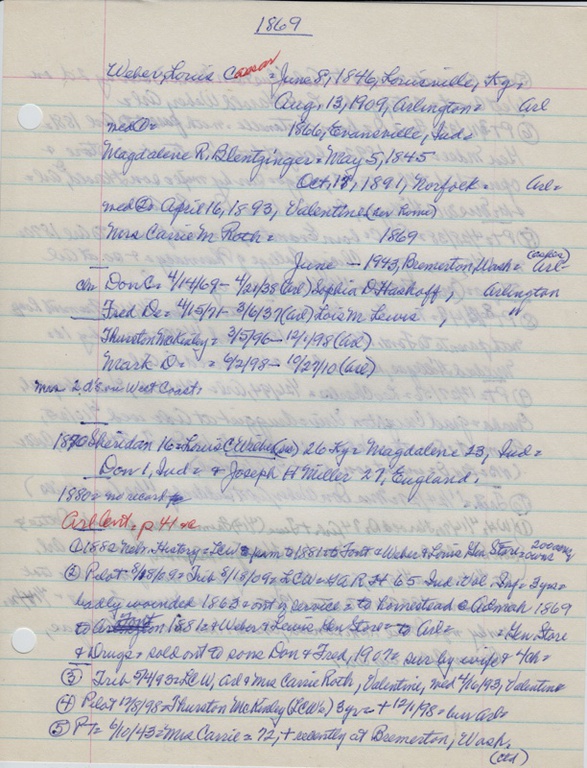 1869
Weber, Louis Caesar = June 8, 1846, Louisville, Ky.,
Aug. 13, 1909, Arlington = Arl
med ① = 1866, Evansville, Ind =
Magdalene R. Blentzinger = May 5, 1845
Oct. 17, 1891, Norfolk = Arl =
med ② April 16, 1893, Valentine (Rev Rome)
Mrs Carrie M. Roth = 1869
June - 1943, Bremerton, Wash = (ashes) Arl -
chr Don C = 4/14/69 - 4/21/38 (Arl) Sophia D Hashoff, Arlington
Fred D = 4/15/71 - 3/6/37 (Arl) Lois M. Lewis, "
Thurston McKinley = 3/5/96 - 12/1/98 (Arl)
Mark D = 4/2/98 - 10/27/10 (Arl)
Mrs 2 d's on West Coast.
1870 Sheridan 16 = Louis C Weber (sic) 26 Ky = Magdalene 23, Ind =
Don 1, Ind = & Joseph H Miller 27, England.
1880 = no record
Arl Cent = p 41 =
① 1882 Nebr. History = LCW = prm to 1881 = to Font & Weber & Lewis Gen Store = 2000 acres
② Pilot 8/18/09 = Trib 8/18/09 = LCW = GAR H 65 Ind Vol Inf = 3 yrs =
badly wounded 1863 = ont in service = to homestead @ Admah 1869
to Font 1881 = & Weber & Lewis Gen Store = to Arl = = Gen Store
& Drugs = sold out to sons Don & Fred, 1907 = sur by wife & 4 ch =
③ Trib 5/4/93 = LCW, Arl & Mrs Carrie Roth, Valentine, med 4/16/93, Valentine
④ Pilot 12/8/98 = Thurston McKinley (LCW's) 3 yrs + 12/1/98 = bur Arl =
⑤ PT = 6/10/43 = Mrs Carrie = 72, + recently at Bremerton, Wash.